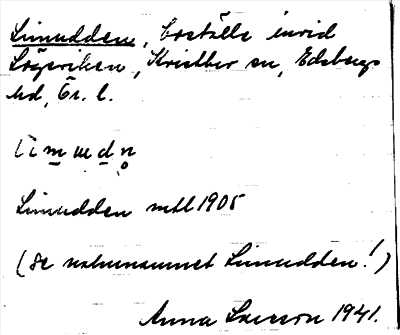 Limudden, boställe invid
Lögeviken, Kristber sn, Edsbergs
hd, Ör. l.
Limudden mtl 1905
(se naturnamnet Limudden!)
Anna Larsson 1941.